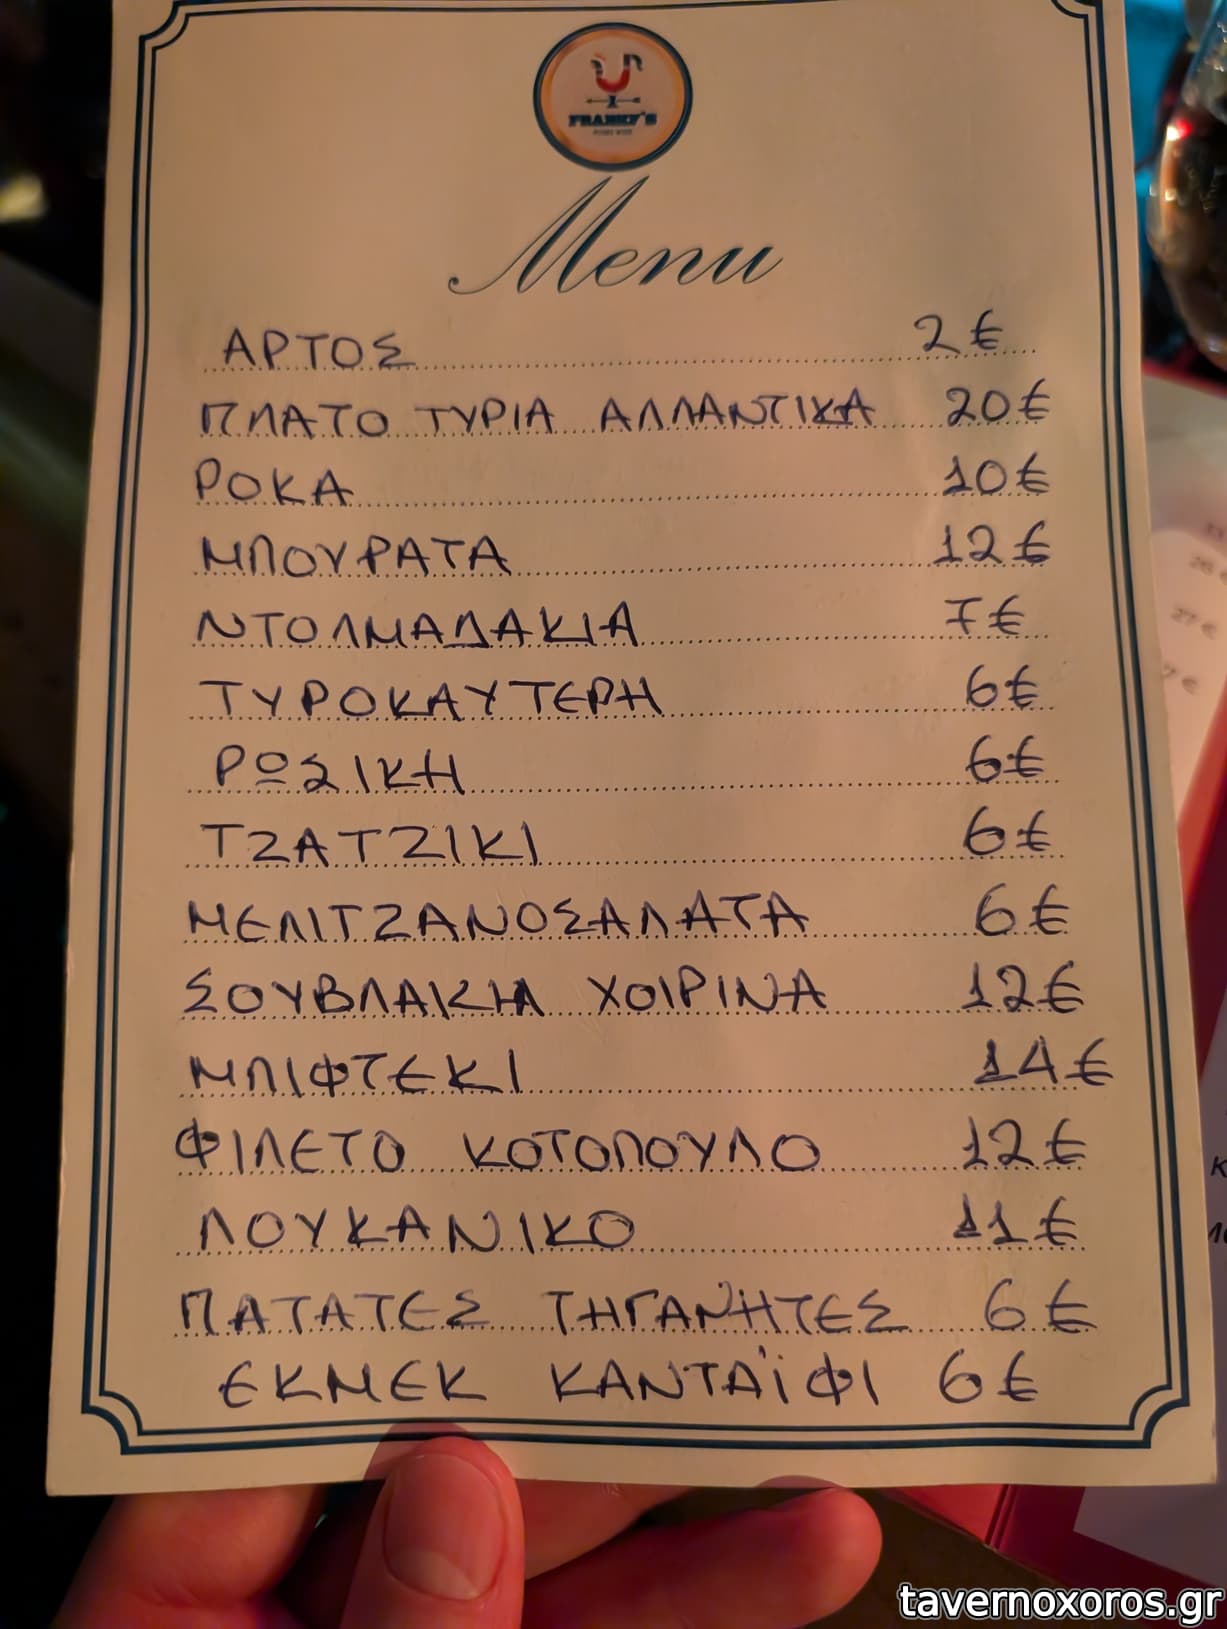 FRANKY'S
Menu
ΑΡΤΟΣ 2€
ΠΛΑΤΟ ΤΥΡΙΑ ΑΛΛΑΝΤΙΚΑ 20€
ΡΟΚΑ 10€
ΜΠΟΥΡΑΤΑ 12€
ΝΤΟΛΜΑΔΑΚΙΑ 7€
ΤΥΡΟΚΑΥΤΕΡΗ 6€
ΡΩΣΙΚΗ 6€
ΤΖΑΤΖΙΚΙ 6€
ΜΕΛΙΤΖΑΝΟΣΑΛΑΤΑ 6€
ΣΟΥΒΛΑΚΙΑ ΧΟΙΡΙΝΑ 12€
ΜΠΙΦΤΕΚΙ 14€
ΦΙΛΕΤΟ ΚΟΤΟΠΟΥΛΟ 12€
ΛΟΥΚΑΝΙΚΟ 11€
ΠΑΤΑΤΕΣ ΤΗΓΑΝΗΤΕΣ 6€
ΕΚΜΕΚ ΚΑΝΤΑΪΦΙ 6€
27 €
tavernoxoros.gr